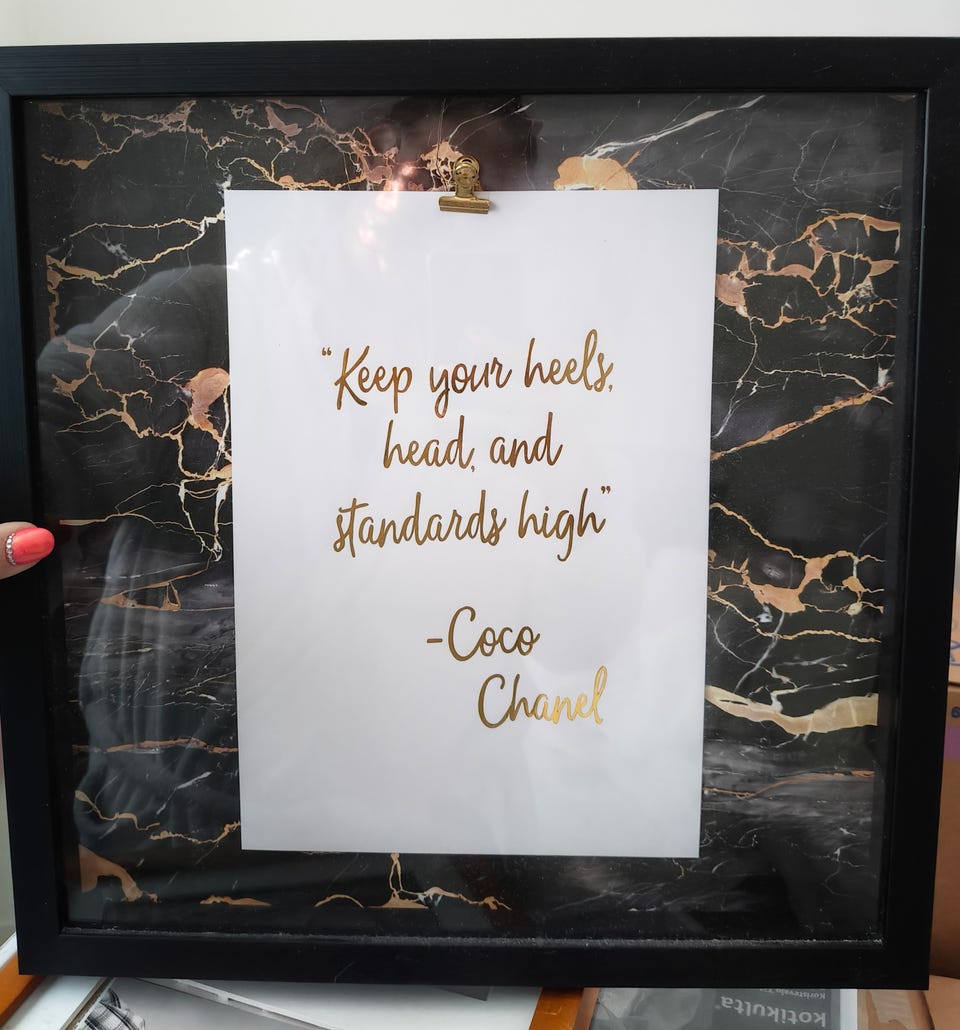 “Keep your heels,
head, and
standards high”
-Coco
Chanel
kotikulta